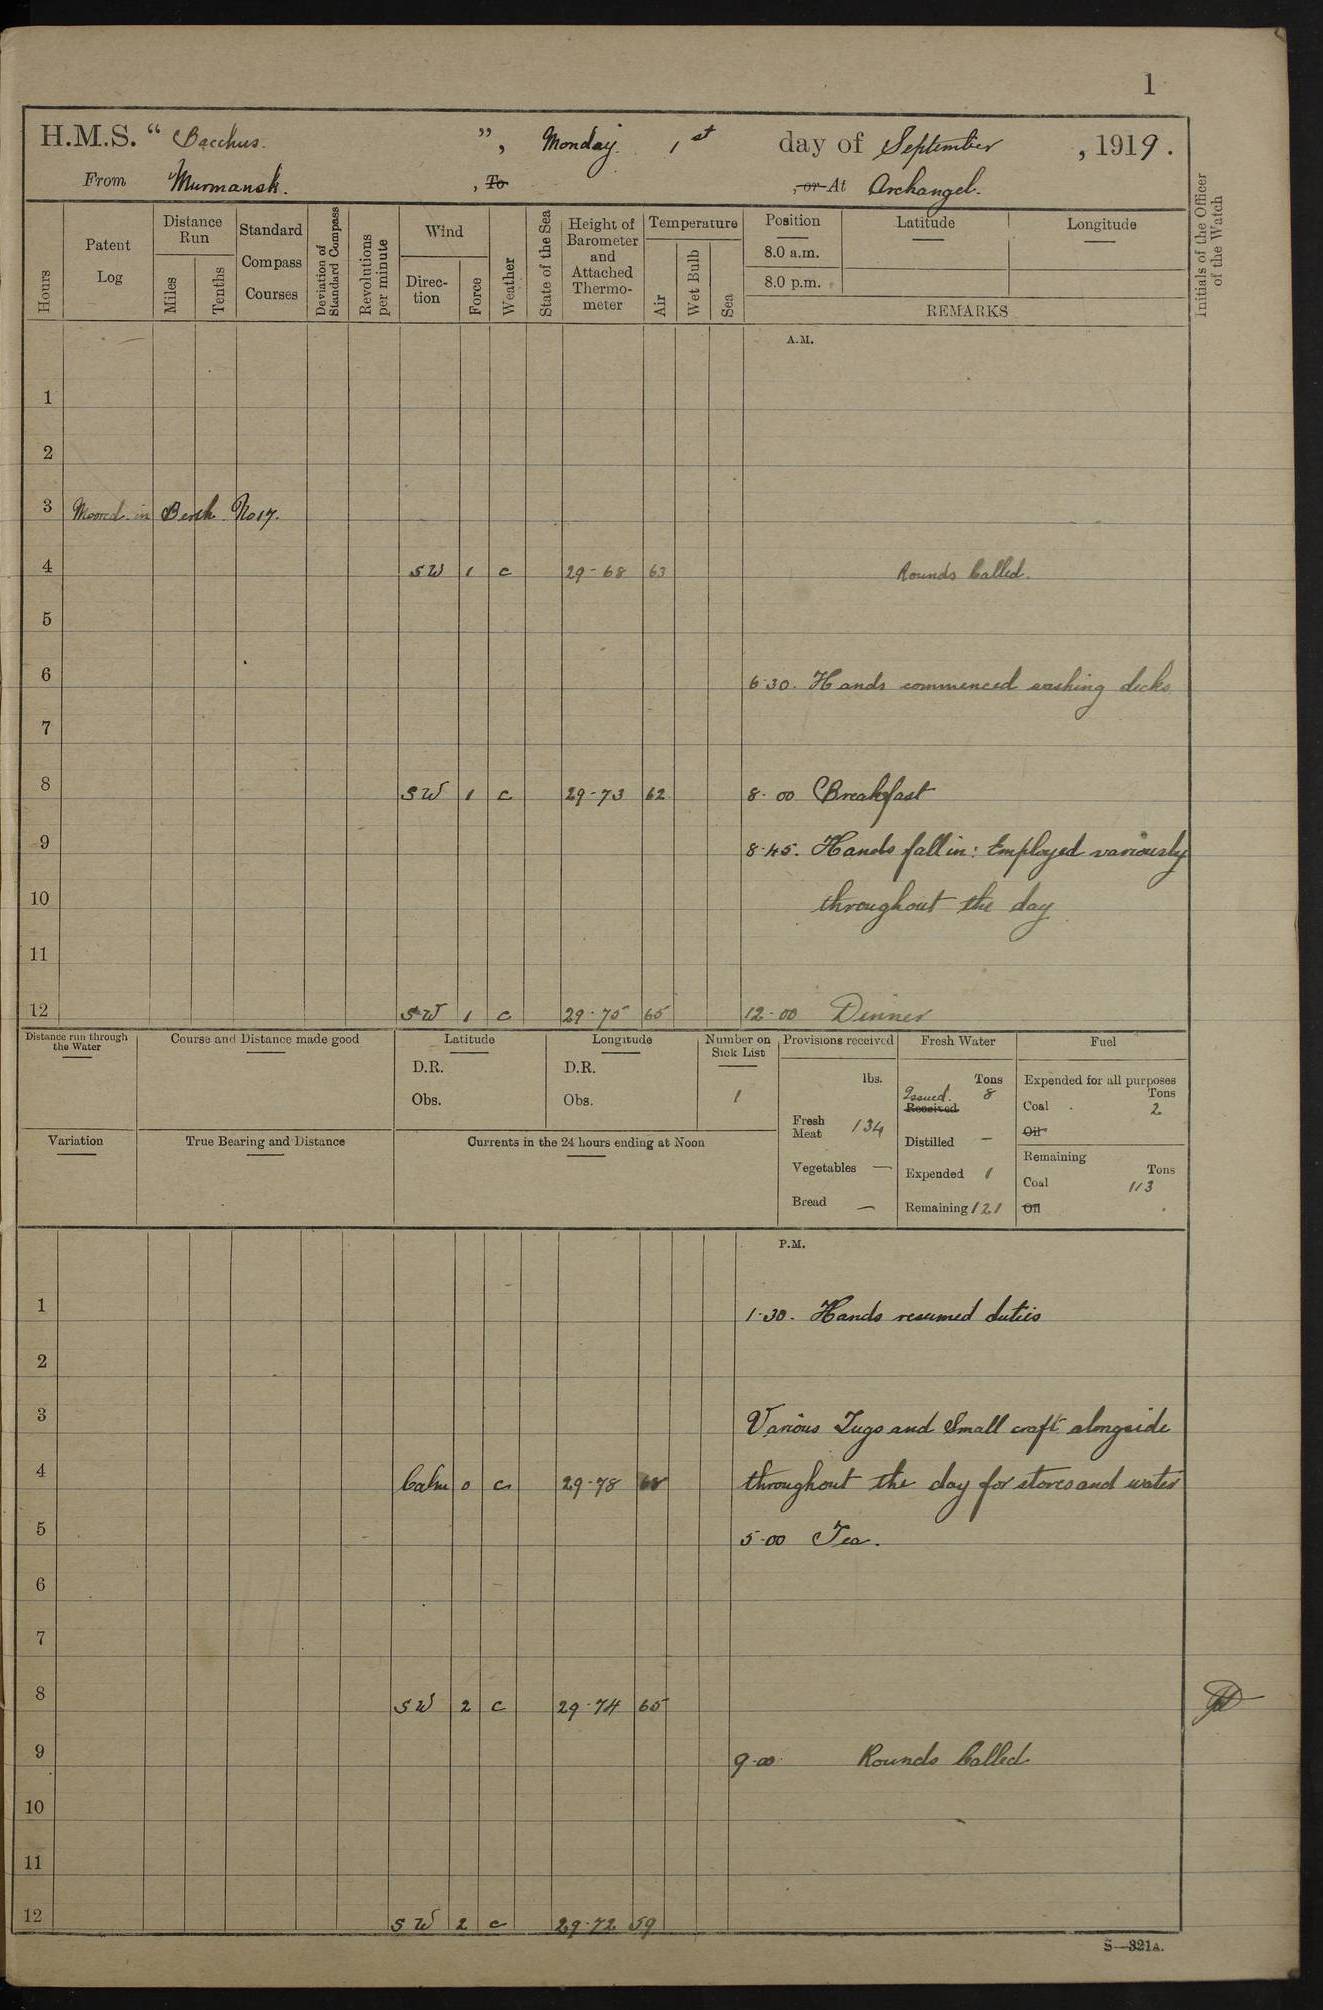 1
H.M.S. "Bacchus.", Monday. 1st day of September, 1919.
From Murmansk. , To , or At Archangel.
Hours
Patent Log
Distance Run
Miles
Tenths
Standard Compass Courses
Deviation of Standard Compass
Revolutions per minute
Wind
Direction
Force
Weather
State of the Sea
Height of Barometer and Attached Thermometer
Temperature
Air
Wet Bulb
Sea
Position
8.0 a.m.
8.0 p.m.
Latitude
Longitude
REMARKS
Initials of the Officer of the Watch
A.M.
1
2
3 Moored in Berth No 17.
4 SW 1 c 29-68 63 Rounds Called.
5
6 6.30. Hands commenced washing decks
7
8 SW 1 c 29-73 62 8-00 Breakfast
9 8.45. Hands fall in: Employed variously
10 throughout the day
11
12 SW 1 c 29-75 65 12-00 Dinner
Distance run through the Water
Course and Distance made good
Latitude
D.R.
Obs.
Longitude
D.R.
Obs.
Number on Sick List
1
Provisions received
lbs.
Fresh Meat 134
Vegetables —
Bread —
Fresh Water
Tons
Issued. 8
Received
Distilled —
Expended 1
Remaining 121
Fuel
Expended for all purposes
Tons
Coal 2
Oil
Remaining
Tons
Coal 113
Oil
Variation
True Bearing and Distance
Currents in the 24 hours ending at Noon
P.M.
1 1.30. Hands resumed duties
2
3 Various Tugs and Small craft alongside
4 Calm 0 c 29-78 68 throughout the day for stores and water
5 5-00 Tea.
6
7
8 SW 2 c 29-74 65
9 9-00 Rounds Called
10
11
12 SW 2 c 29-72 59
S—321A.